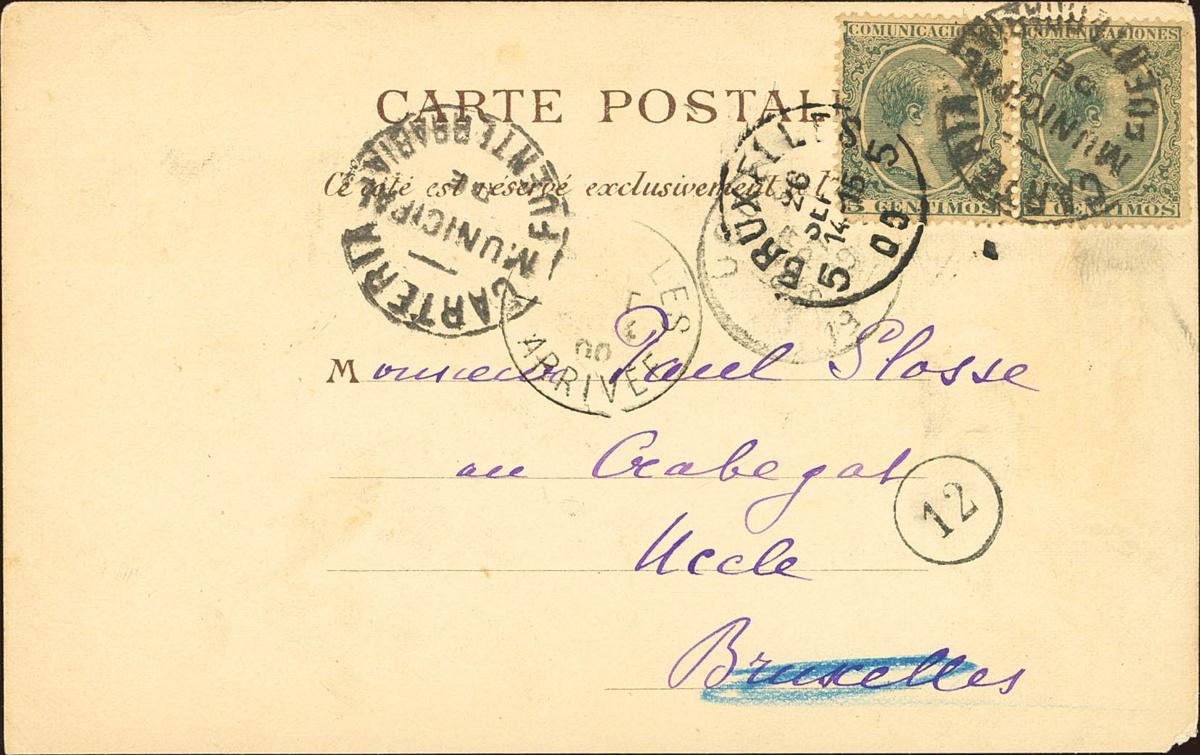 CARTE POSTALE
Ce côté est réservé exclusivement à l'
COMUNICACIONES
COMUNICACIONES
5 CENTIMOS
5 CENTIMOS
CARTERIA MUNICIPAL
DE
CARTERIA MUNICIPAL
DE
BRUXELLES
26
SEPT
14
5 00 5
LES
00
ARRIVÉE
Monsieur Paul Slosse
au Crabegat
12
Uccle
Bruxelles